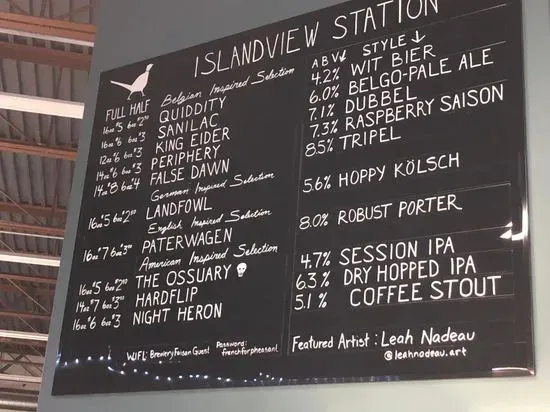 ISLANDVIEW STATION
FULL HALF Belgian Inspired Selection ABV↓ STYLE↓
16oz $5 6oz 2.50 QUIDDITY 4.2% WIT BIER
16oz $6 6oz $3 SANILAC 6.0% BELGO-PALE ALE
12oz $6 6oz $3 KING EIDER 7.1% DUBBEL
14oz $6 6oz $3 PERIPHERY 7.3% RASPBERRY SAISON
14oz $8 6oz $4 FALSE DAWN 8.5% TRIPEL
German Inspired Selection
16oz $5 6oz 2.50 LANDFOWL 5.6% HOPPY KÖLSCH
English Inspired Selection
16oz $7 6oz PATERWAGEN 8.0% ROBUST PORTER
American Inspired Selection
16oz $5 6oz 2.50 THE OSSUARY 4.7% SESSION IPA
14oz $7 6oz HARDFLIP 6.3% DRY HOPPED IPA
16oz $6 6oz $3 NIGHT HERON 5.1% COFFEE STOUT
WIFI: BreweryFaisan Guest Password: frenchforpheasant
Featured Artist: Leah Nadeau
@leahnadeau.art